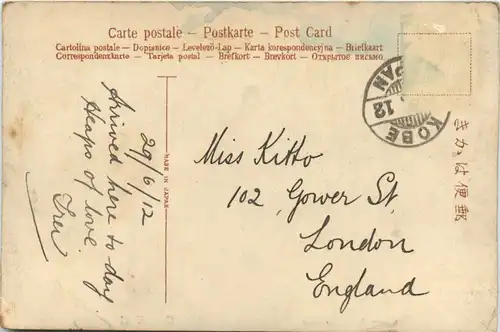 Carte postale – Postkarte – Post Card
Cartolina postale – Dopisnice – Levelező-Lap – Karta korespondencyjna – Briefkaart
Correspondenzkarte – Tarjeta postal – Brefkort – Brevkort – Открытое письмо
29/6/12
Arrived here to day
Heaps of love.
MADE IN JAPAN
Miss Kitto
102, Gower St
London
England
PAN
12
KOBE
きかは便郵